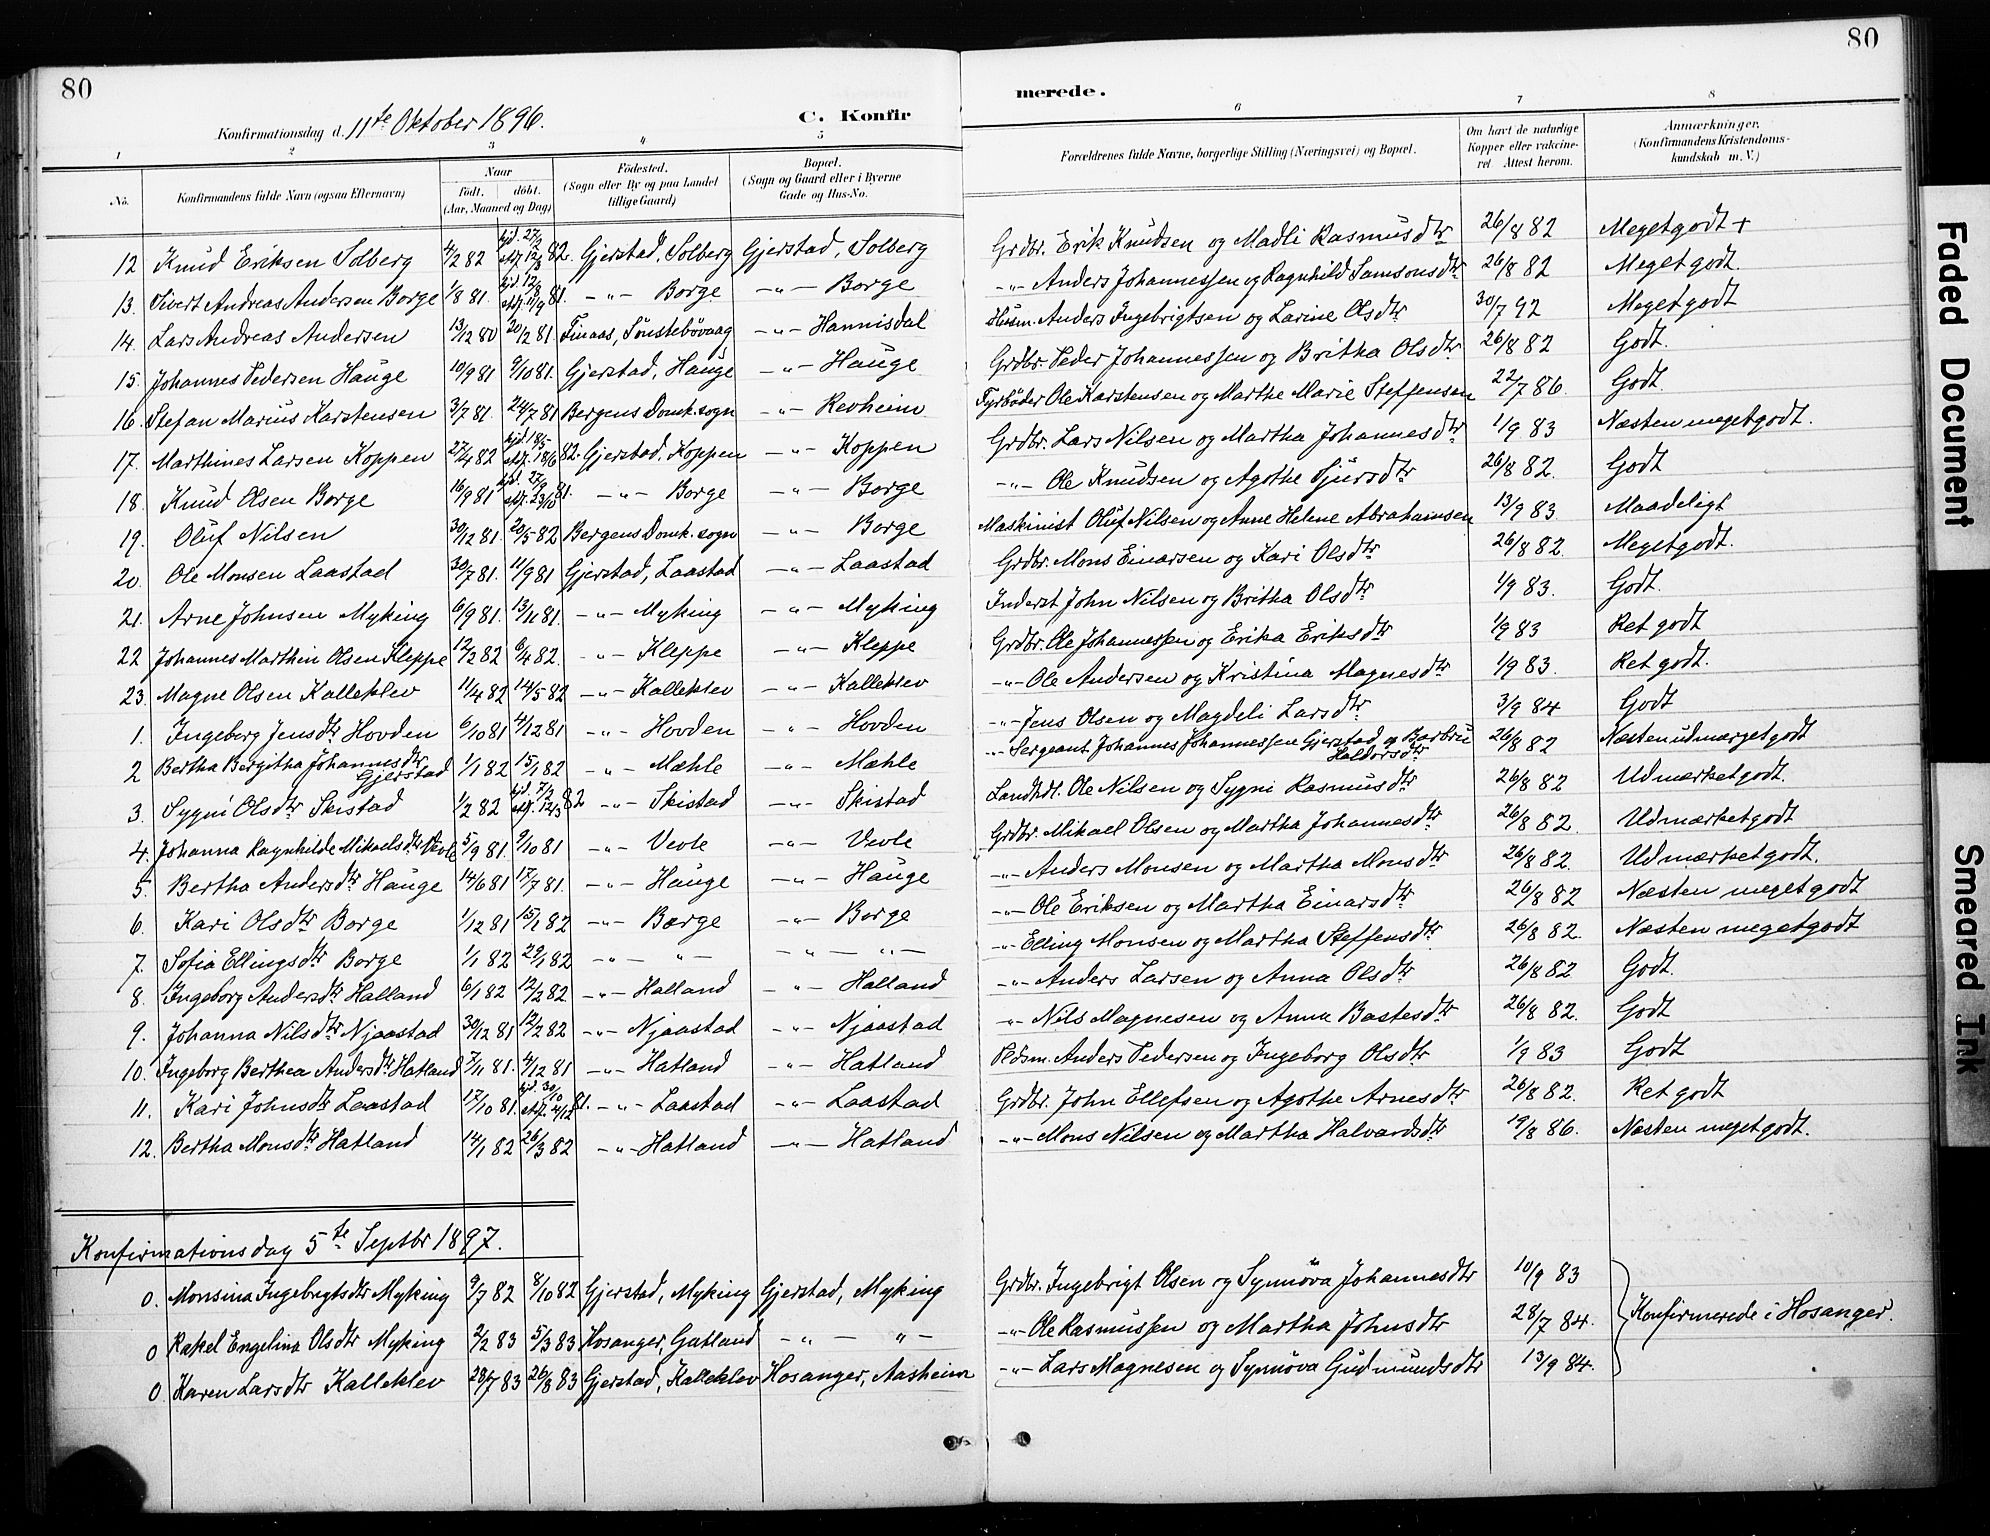 80
80
Konfirmationsdag d. 11te Oktober 1896.
C. Konfir
merede.
1 2 3 4 5 6 7 8
No. Konfirmandens fulde Navn (ogsaa Efternavn) Naar født, døbt. (Aar, Maaned og Dag) Fødested. (Sogn eller By og paa Landet tillige Gaard) Bopæl. (Sogn og Gaard eller i Byerne Gade og Hus-No. Forældrenes fulde Navne, borgerlige Stilling (Næringsvei) og Bopæl. Om havt de naturlige Kopper eller vakcineret. Attest herom. Anmærkninger, (Konfirmandens Kristendomskundskab m. V.)
12 Knud Eriksen Solberg 4/2 82 hjd. 27/2 stdf. 12/3 82. Gjerstad, Solberg Gjerstad, Solberg Grdbr. Erik Knudsen og Madli Rasmusdtr 26/8 82 Megetgodt +
13. Sivert Andreas Andersen Borge 1/8 81. hjd. 12/8 stdf. 11/9 81. -"- Borge -"- Borge -"- Anders Johannessen og Ragnhild Samsonsdtr 26/8 82 Megetgodt.
14. Lars Andreas Andersen 13/12 80 20/12 81. Finaas, Sønstebøvaag -"- Hannisdal Husm. Anders Ingebrigtsen og Larine Olsdtr 30/7 92 Megetgodt
15. Johannes Pedersen Hauge 10/9 81 9/10 81. Gjerstad, Hauge -"- Hauge Grdbr. Peder Johannessen og Britha Olsdtr 26/8 82 Godt.
16. Stefan Marius Karstensen 3/7 81. 24/7 81 Bergens Domk. sogn -"- Revheim Fyrbøder Ole Karstensen og Marthe Marie Steffensen 22/7 86. Godt.
17. Marthines Larsen Koppen 27/4 82 hjd. 18/5 stdf. 18/6 82. Gjerstad, Koppen -"- Koppen Grdbr. Lars Nilsen og Martha Johannesdtr 1/9 83 Næsten megetgodt.
18. Knud Olsen Borge 16/9 81 hjd. 27/9 stdf. 23/10 81. -"- Borge -"- Borge -"- Ole Knudsen og Agothe Sjursdtr 26/8 82. Godt
19. Oluf Nilsen 30/12 81. 20/5 82 Bergens Domk. sogn -"- Borge Maskinist Oluf Nilsen og Anne Helene Abrahamsen 13/9 83. Maadeligt
20. Ole Monsen Laastad 30/7 81. 11/9 81 Gjerstad, Laastad -"- Laastad Grdbr. Mons Einarsen og Kari Olsdtr 26/8 82. Megetgodt.
21. Arne Johnsen Myking 6/9 81. 13/11 81. -"- Myking -"- Myking Inderst John Nilsen og Britha Olsdtr 1/9 83. Godt.
22 Johannes Marthin Olsen Kleppe 12/2 82 6/4 82. -"- Kleppe -"- Kleppe Grdbr. Ole Johannessen og Erika Eriksdtr 1/9 83 Ret godt
23. Magne Olsen Kalleklev 11/4 82 14/5 82 -"- Kalleklev -"- Kalleklev -"- Ole Andersen og Kristina Magnesdtr 1/9 83. Ret godt.
1. Ingeberg Jensdtr Hovden 6/10 81 4/12 81 -"- Hovden -"- Hovden -"- Jens Olsen og Magdeli Larsdtr 3/9 84 Godt
2 Bertha Bergitha Johannesdtr Gjerstad 1/1 82 15/1 82 -"- Mæhle -"- Mæhle -"- Sergeant Johannes Johannessen Gjerstad og Barbru Haldorsdtr 26/8 82 Næsten udmærgetgodt
3. Sygni Olsdtr Skistad 1/2 82 hjd. 7/2 stdf. 12/3 82 -"- Skistad -"- Skistad Landhdl. Ole Nilsen og Sygni Rasmusdtr 26/8 82 Udmærketgodt.
4. Johanna Ragnhilde Mikaelsdtr Vevle 5/9 81. 9/10 81 -"- Vevle -"- Vevle Grdbr. Mikael Olsen og Martha Johannesdtr 26/8 82 Udmærketgodt
5. Bertha Andersdtr Hauge 14/6 81 17/7 81. -"- Hauge -"- Hauge -"- Anders Monsen og Martha Monsdtr 26/8 82. Udmærketgodt.
6. Kari Olsdtr Borge 1/12 81 15/1 82 -"- Borge -"- Borge -"- Ole Eriksen og Martha Einarsdtr 26/8 82 Næsten megetgodt
7. Sofia Ellingsdtr Borge 1/1 82 29/1 82 -"- "- -"- "- -"- Elling Monsen og Martha Steffensdtr 26/8 82. Næsten megetgodt
8. Ingeborg Andersdtr Halland 6/1 82 12/2 82 -"- Halland -"- Halland -"- Anders Larsen og Anna Olsdtr 26/8 82 Godt.
9. Johanna Nilsdtr Njaastad 30/12 81 12/2 82 -"- Njaastad -"- Njaastad -"- Nils Magnesen og Anna Bastesdtr 26/8 82. Godt
10. Ingeborg Berthea Andersdtr Hatland 7/11 81. 4/12 81 -"- Hatland -"- Hatland Pldsm. Anders Pedersen og Ingeborg Olsdtr 1/9 83 Godt
11. Kari Johnsdtr Laastad 17/10 81. hjd. 30/10 stdf. 4/12 81. -"- Laastad -"- Laastad Grdbr. John Ellefsen og Agothe Arnesdtr 26/8 82. Ret godt
12. Bertha Monsdtr Hatland 14/1 82 26/3 82 -"- Hatland -"- Hatland -"- Mons Nilsen og Martha Halvardsdtr 19/8 86. Næsten megetgodt.
Konfirmationsdag 5te Septbr 1897.
0. Monsina Ingebrigtsdtr Myking 9/7 82 8/10 82 Gjerstad, Myking Gjerstad, Myking Grdbr. Ingebrigt Olsen og Synnøva Johannesdtr 10/9 83
0 Rakel Engelina Olsdtr Myking 2/2 83 5/3 83 Hosanger, Gatland -"- "- -"- Ole Rasmussen og Martha Johnsdtr 28/7 84. Konfirmerede i Hosanger.
0 Karen Larsdtr Kalleklev 28/7 83 26/8 83 Gjerstad, Kalleklev Hosanger, Aasheim -"- Lars Magnesen og Synnøva Gudmundsdtr 13/9 84.
Faded Document
Smeared Ink